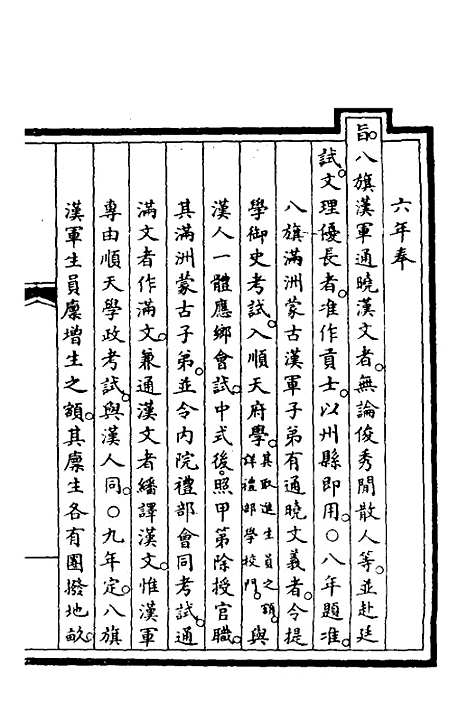 六年奉
旨。八旗漢軍通曉漢文者。無論俊秀閒散人等。並赴廷
試。文理優長者。准作貢士。以州縣即用。〇八年題准。
八旗滿洲蒙古漢軍子弟有通曉文義者。令提
學御史考試。入順天府學。其取進生員之額。詳禮部學校門。與
漢人一體應鄉會試。中式後。照甲第除授官職。
其滿洲蒙古子弟。並令內院禮部會同考試。通
滿文者作滿文。兼通漢文者繙譯漢文。惟漢軍
專由順天學政考試。與漢人同。〇九年定。八旗
漢軍生員廩增生之額。其廩生各有圈撥地畝。